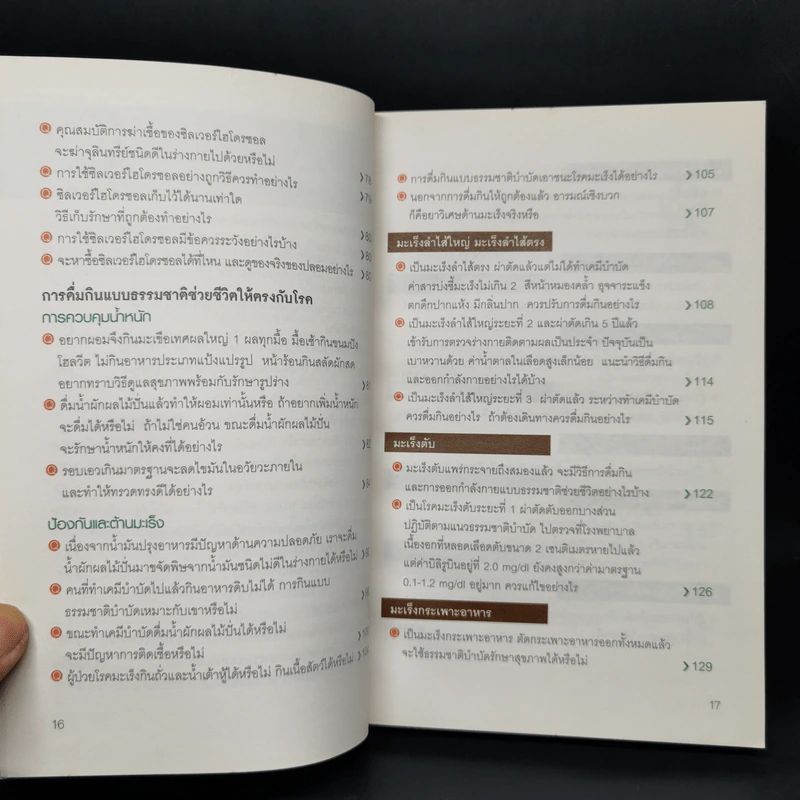 คุณสมบัติการฆ่าเชื้อของซิลเวอร์ไฮโดรซอล
จะฆ่าจุลินทรีย์ชนิดดีในร่างกายไปด้วยหรือไม่ 78
การใช้ซิลเวอร์ไฮโดรซอลอย่างถูกวิธีควรทำอย่างไร 79
ซิลเวอร์ไฮโดรซอลเก็บไว้ได้นานเท่าใด
วิธีเก็บรักษาที่ถูกต้องทำอย่างไร 80
การใช้ซิลเวอร์ไฮโดรซอลมีข้อควรระวังอย่างไรบ้าง 80
จะหาซื้อซิลเวอร์ไฮโดรซอลได้ที่ไหน และดูของจริงของปลอมอย่างไร 80
การดื่มกินแบบธรรมชาติช่วยชีวิตให้ตรงกับโรค
การควบคุมน้ำหนัก
อยากผอมจึงกินมะเขือเทศผลใหญ่ 1 ผลทุกมื้อ มื้อเช้ากินขนมปัง
โฮลวีต ไม่กินอาหารประเภทแป้งแปรรูป หน้าร้อนกินสลัดผักสด
อยากทราบวิธีดูแลสุขภาพพร้อมกับรักษารูปร่าง
ดื่มน้ำผักผลไม้ปั่นแล้วทำให้ผอมเท่านั้นหรือ ถ้าอยากเพิ่มน้ำหนัก
จะดื่มได้หรือไม่ ถ้าไม่ใช่คนอ้วน ขณะดื่มน้ำผักผลไม้ปั่น
จะรักษาน้ำหนักให้คงที่ได้อย่างไร
รอบเอวเกินมาตรฐานจะลดไขมันในอวัยวะภายใน
และทำให้ทรวดทรงดีได้อย่างไร
ป้องกันและต้านมะเร็ง
เนื่องจากน้ำมันปรุงอาหารมีปัญหาด้านความปลอดภัย เราจะดื่ม
น้ำผักผลไม้ปั่นมาขจัดพิษจากน้ำมันชนิดไม่ดีในร่างกายได้หรือไม่
คนที่ทำเคมีบำบัดไปแล้วกินอาหารดิบไม่ได้ การกินแบบ
ธรรมชาติบำบัดเหมาะกับเขาหรือไม่
ขณะทำเคมีบำบัดดื่มน้ำผักผลไม้ปั่นได้หรือไม่
จะมีปัญหาการติดเชื้อหรือไม่
ผู้ป่วยโรคมะเร็งกินถั่วและน้ำเต้าหู้ได้หรือไม่ กินเนื้อสัตว์ได้หรือไม่
16
การดื่มกินแบบธรรมชาติบำบัดเอาชนะโรคมะเร็งได้อย่างไร 105
นอกจากการดื่มกินให้ถูกต้องแล้ว อารมณ์เชิงบวก
ก็คือยาวิเศษต้านมะเร็งจริงหรือ 107
มะเร็งลำไส้ใหญ่ มะเร็งลำไส้ตรง
เป็นมะเร็งลำไส้ตรง ผ่าตัดแล้วแต่ไม่ได้ทำเคมีบำบัด
ค่าสารบ่งชี้มะเร็งไม่เกิน 2 สีหน้าหมองคล้ำ อุจจาระแข็ง
ตกดึกปากแห้ง มีกลิ่นปาก ควรปรับการดื่มกินอย่างไร 108
เป็นมะเร็งลำไส้ใหญ่ระยะที่ 2 และผ่าตัดเกิน 5 ปีแล้ว
เข้ารับการตรวจร่างกายติดตามผลเป็นประจำ ปัจจุบันเป็น
เบาหวานด้วย ค่าน้ำตาลในเลือดสูงเล็กน้อย แนะนำวิธีดื่มกิน
และออกกำลังกายอย่างไรได้บ้าง 114
เป็นมะเร็งลำไส้ใหญ่ระยะที่ 3 ผ่าตัดแล้ว ระหว่างทำเคมีบำบัด
ควรดื่มกินอย่างไร ถ้าต้องเดินทางควรดื่มกินอย่างไร 115
มะเร็งตับ
มะเร็งตับแพร่กระจายถึงสมองแล้ว จะมีวิธีการดื่มกิน
และการออกกำลังกายแบบธรรมชาติช่วยชีวิตอย่างไรบ้าง 122
เป็นโรคมะเร็งตับระยะที่ 1 ผ่าตัดตับออกบางส่วน
ปฏิบัติตามแนวธรรมชาติบำบัด ไปตรวจที่โรงพยาบาล
เนื้องอกที่หลอดเลือดตับขนาด 2 เซนติเมตรหายไปแล้ว
แต่ค่าบิลิรูบินอยู่ที่ 2.0 mg/dl ยังคงสูงกว่าค่ามาตรฐาน
0.1-1.2 mg/dl อยู่มาก ควรแก้ไขอย่างไร 126
มะเร็งกระเพาะอาหาร
เป็นมะเร็งกระเพาะอาหาร ตัดกระเพาะอาหารออกทั้งหมดแล้ว
จะใช้ธรรมชาติบำบัดรักษาสุขภาพได้หรือไม่ 129
17